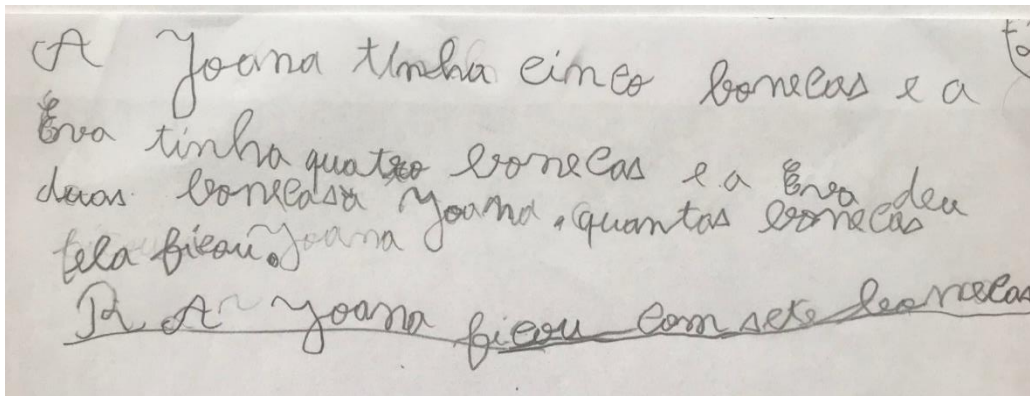 A Joana tinha cinco bonecas e a
Eva tinha quatro bonecas e a Eva deu
duas bonecas a Joana. quantas bonecas
ficou Joana
R. A Joana ficou com sete bonecas